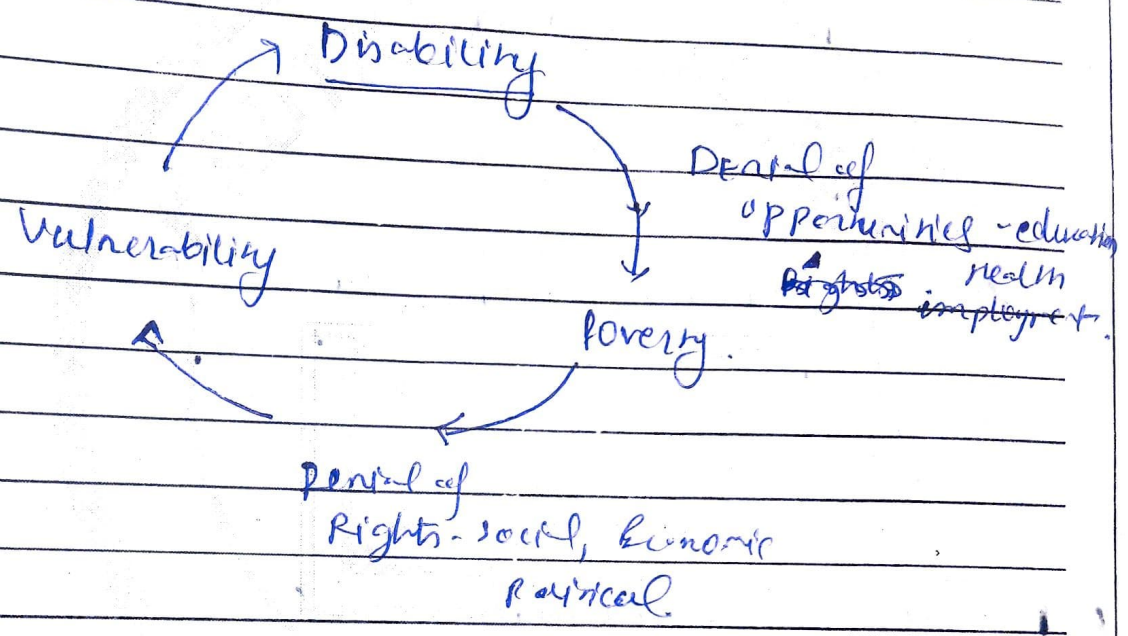 Disability
Denial of
opportunities - education
Rights health
employment.
Vulnerability
Poverty.
Denial of
Rights - social, Economic
Political.